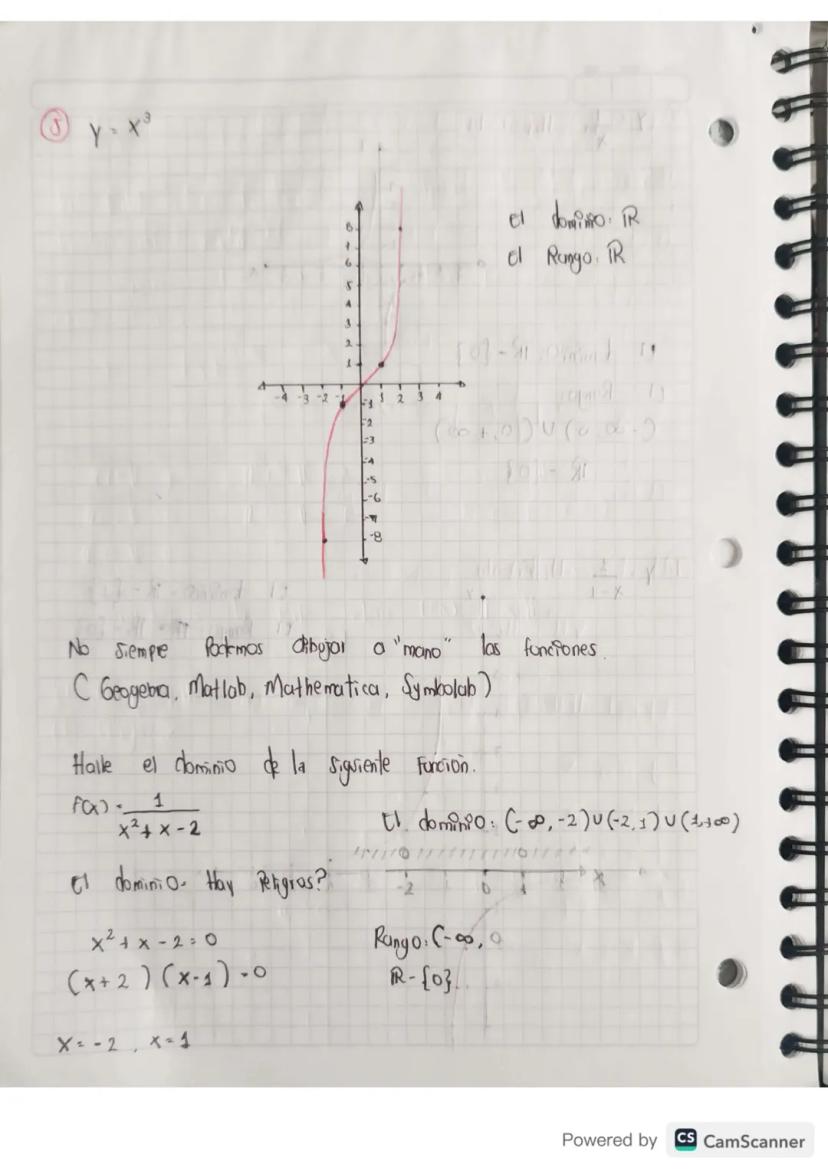 5 y = x³
El dominio: ℝ
el Rango: ℝ
8
7
6
5
4
3
2
1
-4 -3 -2 -1 1 2 3 4
-1
-2
-3
-4
-5
-6
-7
-8
No siempre Podemos dibujar a "mano" las funciones.
( Geogebra, Matlab, Mathematica, Symbolab)
Halle el dominio de la siguiente Función.
f(x) = 1/(x² + x - 2)
El dominio: (-∞, -2) ∪ (-2, 1) ∪ (1, +∞)
El dominio. Hay Peligros?
-2 0 1 x
x² + x - 2 = 0
Rango: (-∞, 0
(x + 2) (x - 1) = 0
ℝ - {0}
x = -2 , x = 1
Powered by CS CamScanner